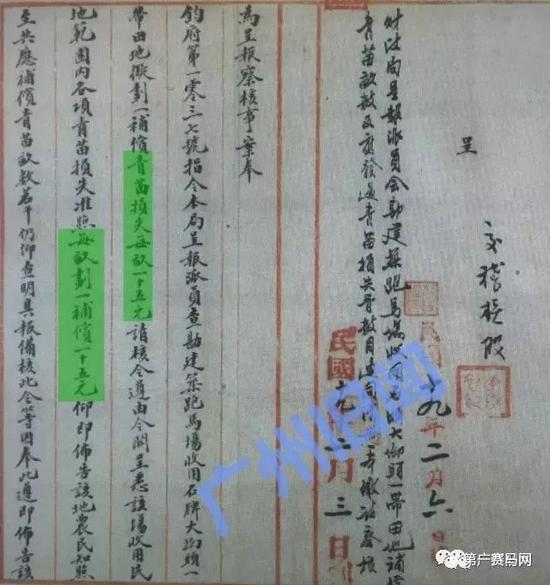 呈
民國十九年二月六日
財政局呈報派員會勘建築跑馬場收用石牌大坳頭一帶田地補償
青苗畝數及應發過青苗損失費數目
民國 年二月三日
為呈報察核事案奉
鈞府第一零三七號指令本局呈報派員查勘建築跑馬場收用石牌大坳頭一
帶田地擬劃一補償青苗損失每畝一十五元請核令遵由令開呈悉該場收用民
地範圍內各項青苗損失准照每畝劃一補償一十五元仰即佈告該地農民知照
至共應補償青苗畝數若干仍仰查明具報備核此令等因奉此遵即佈告該
广州旧闻
第广赛马网